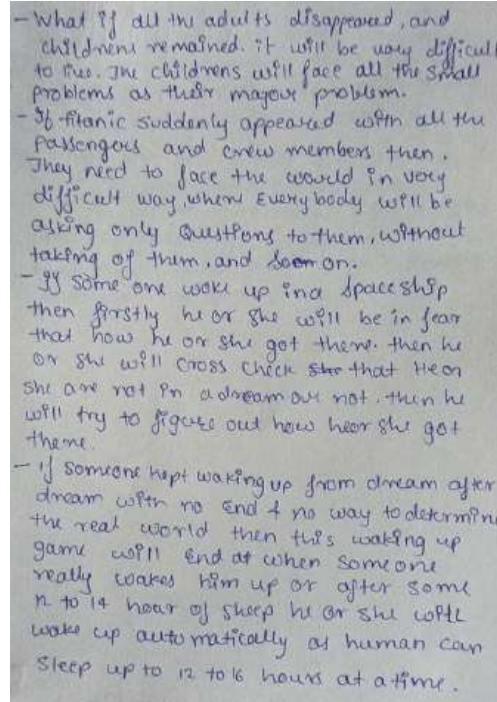 - What if all the adults disappeared, and
childrens remained. it will be vary difficult
to live. The childrens will face all the small
problems as their majour problem.
- If titanic suddenly appeared with all the
passengers and crew members then.
They need to face the would in very
difficult way, where Everybody will be
asking only Questions to them, without
taking of them, and soon on.
- If some one woke up in a spaceship
then firstly he or she will be in fear
that how he or she got there. then he
or she will cross check that He or
she are not in a dream our not. then he
will try to figure out how he or she got
there.
- if someone kept waking up from dream after
dream with no End & no way to determine
the real world then this waking up
game will End at when someone
really wakes him up or after some
12 to 14 hour of sleep he or she will
wake up automatically as human can
Sleep up to 12 to 16 hours at a time.